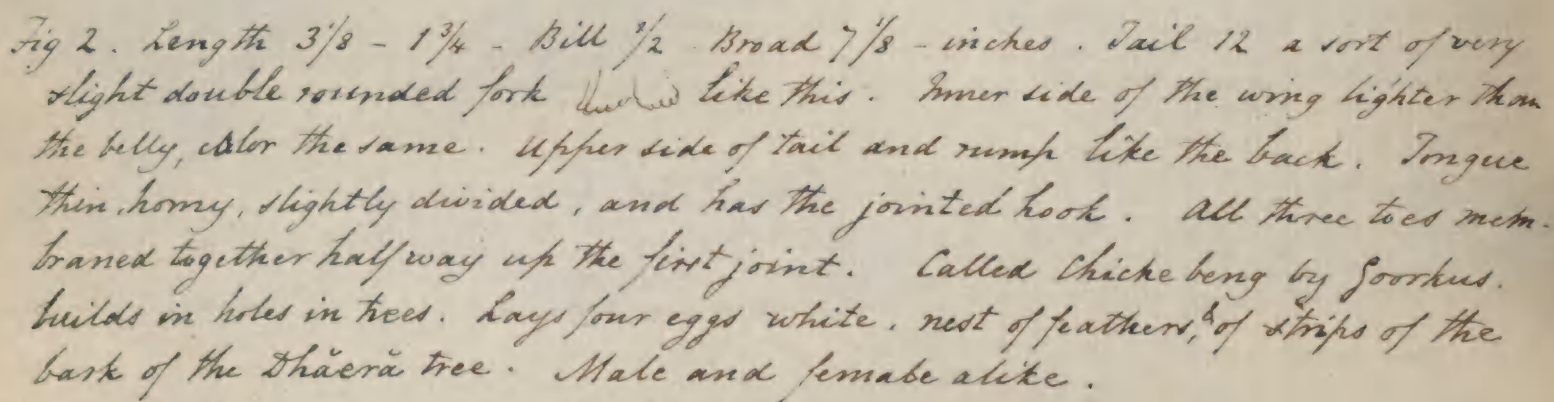 Fig 2. Length 3 1/8 - 1 3/4 - Bill 1/2 Broad 7 1/8 - inches. Tail 12 a sort of very
slight double rounded fork like this. Inner side of the wing lighter than
the belly, color the same. Upper side of tail and rump like the back. Tongue
thin, horny, slightly divided, and has the jointed hook. All three toes mem-
braned together halfway up the first joint. Called Chicke beng by Goorkus.
builds in holes in trees. Lays four eggs white. nest of feathers, & of strips of the
bark of the Dhăeră tree. Male and female alike.